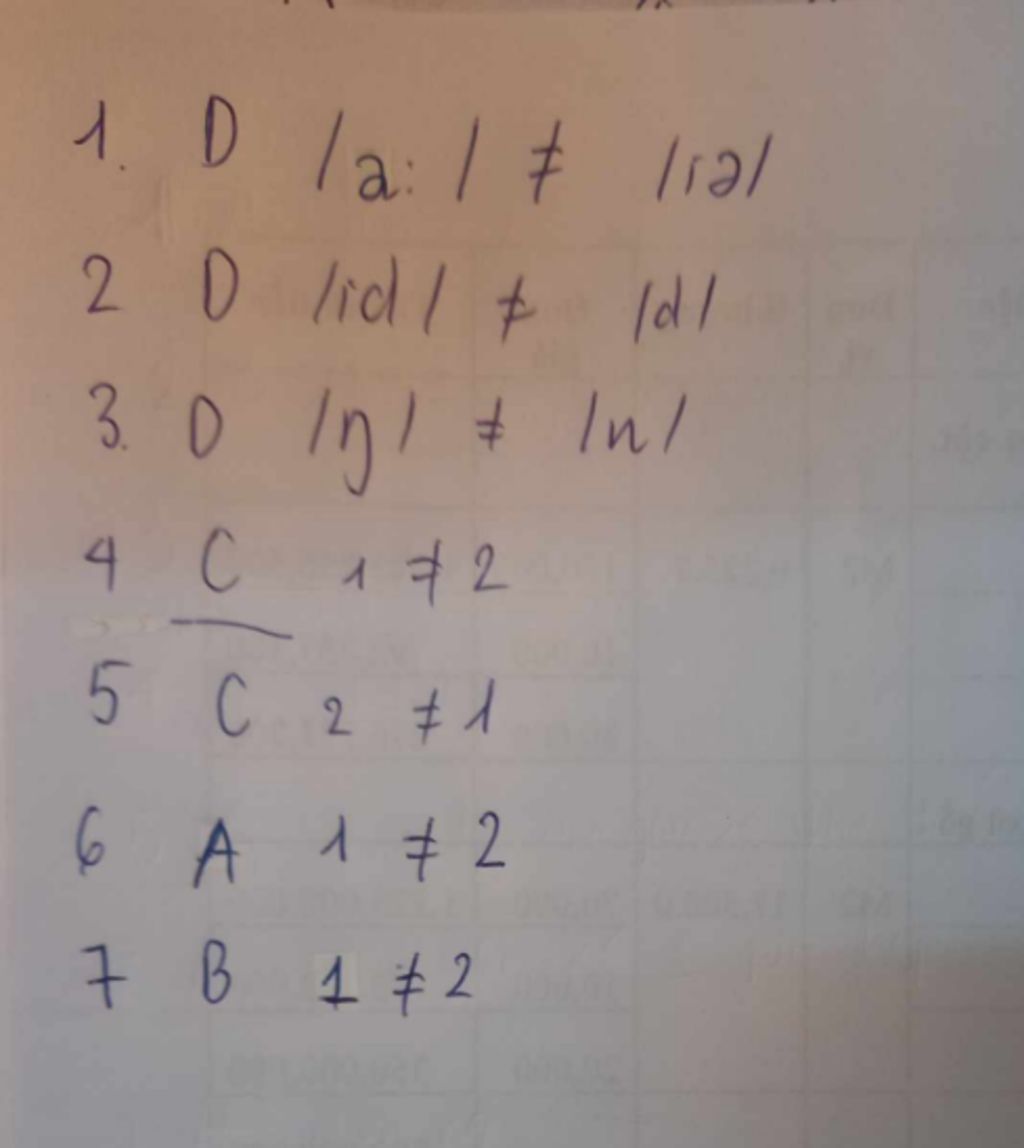 1. D /a: / ≠ /iə/
2 D /id/ ≠ /d/
3. D /ŋ/ ≠ /n/
4 C 1 ≠ 2
5 C 2 ≠ 1
6 A 1 ≠ 2
7 B 1 ≠ 2